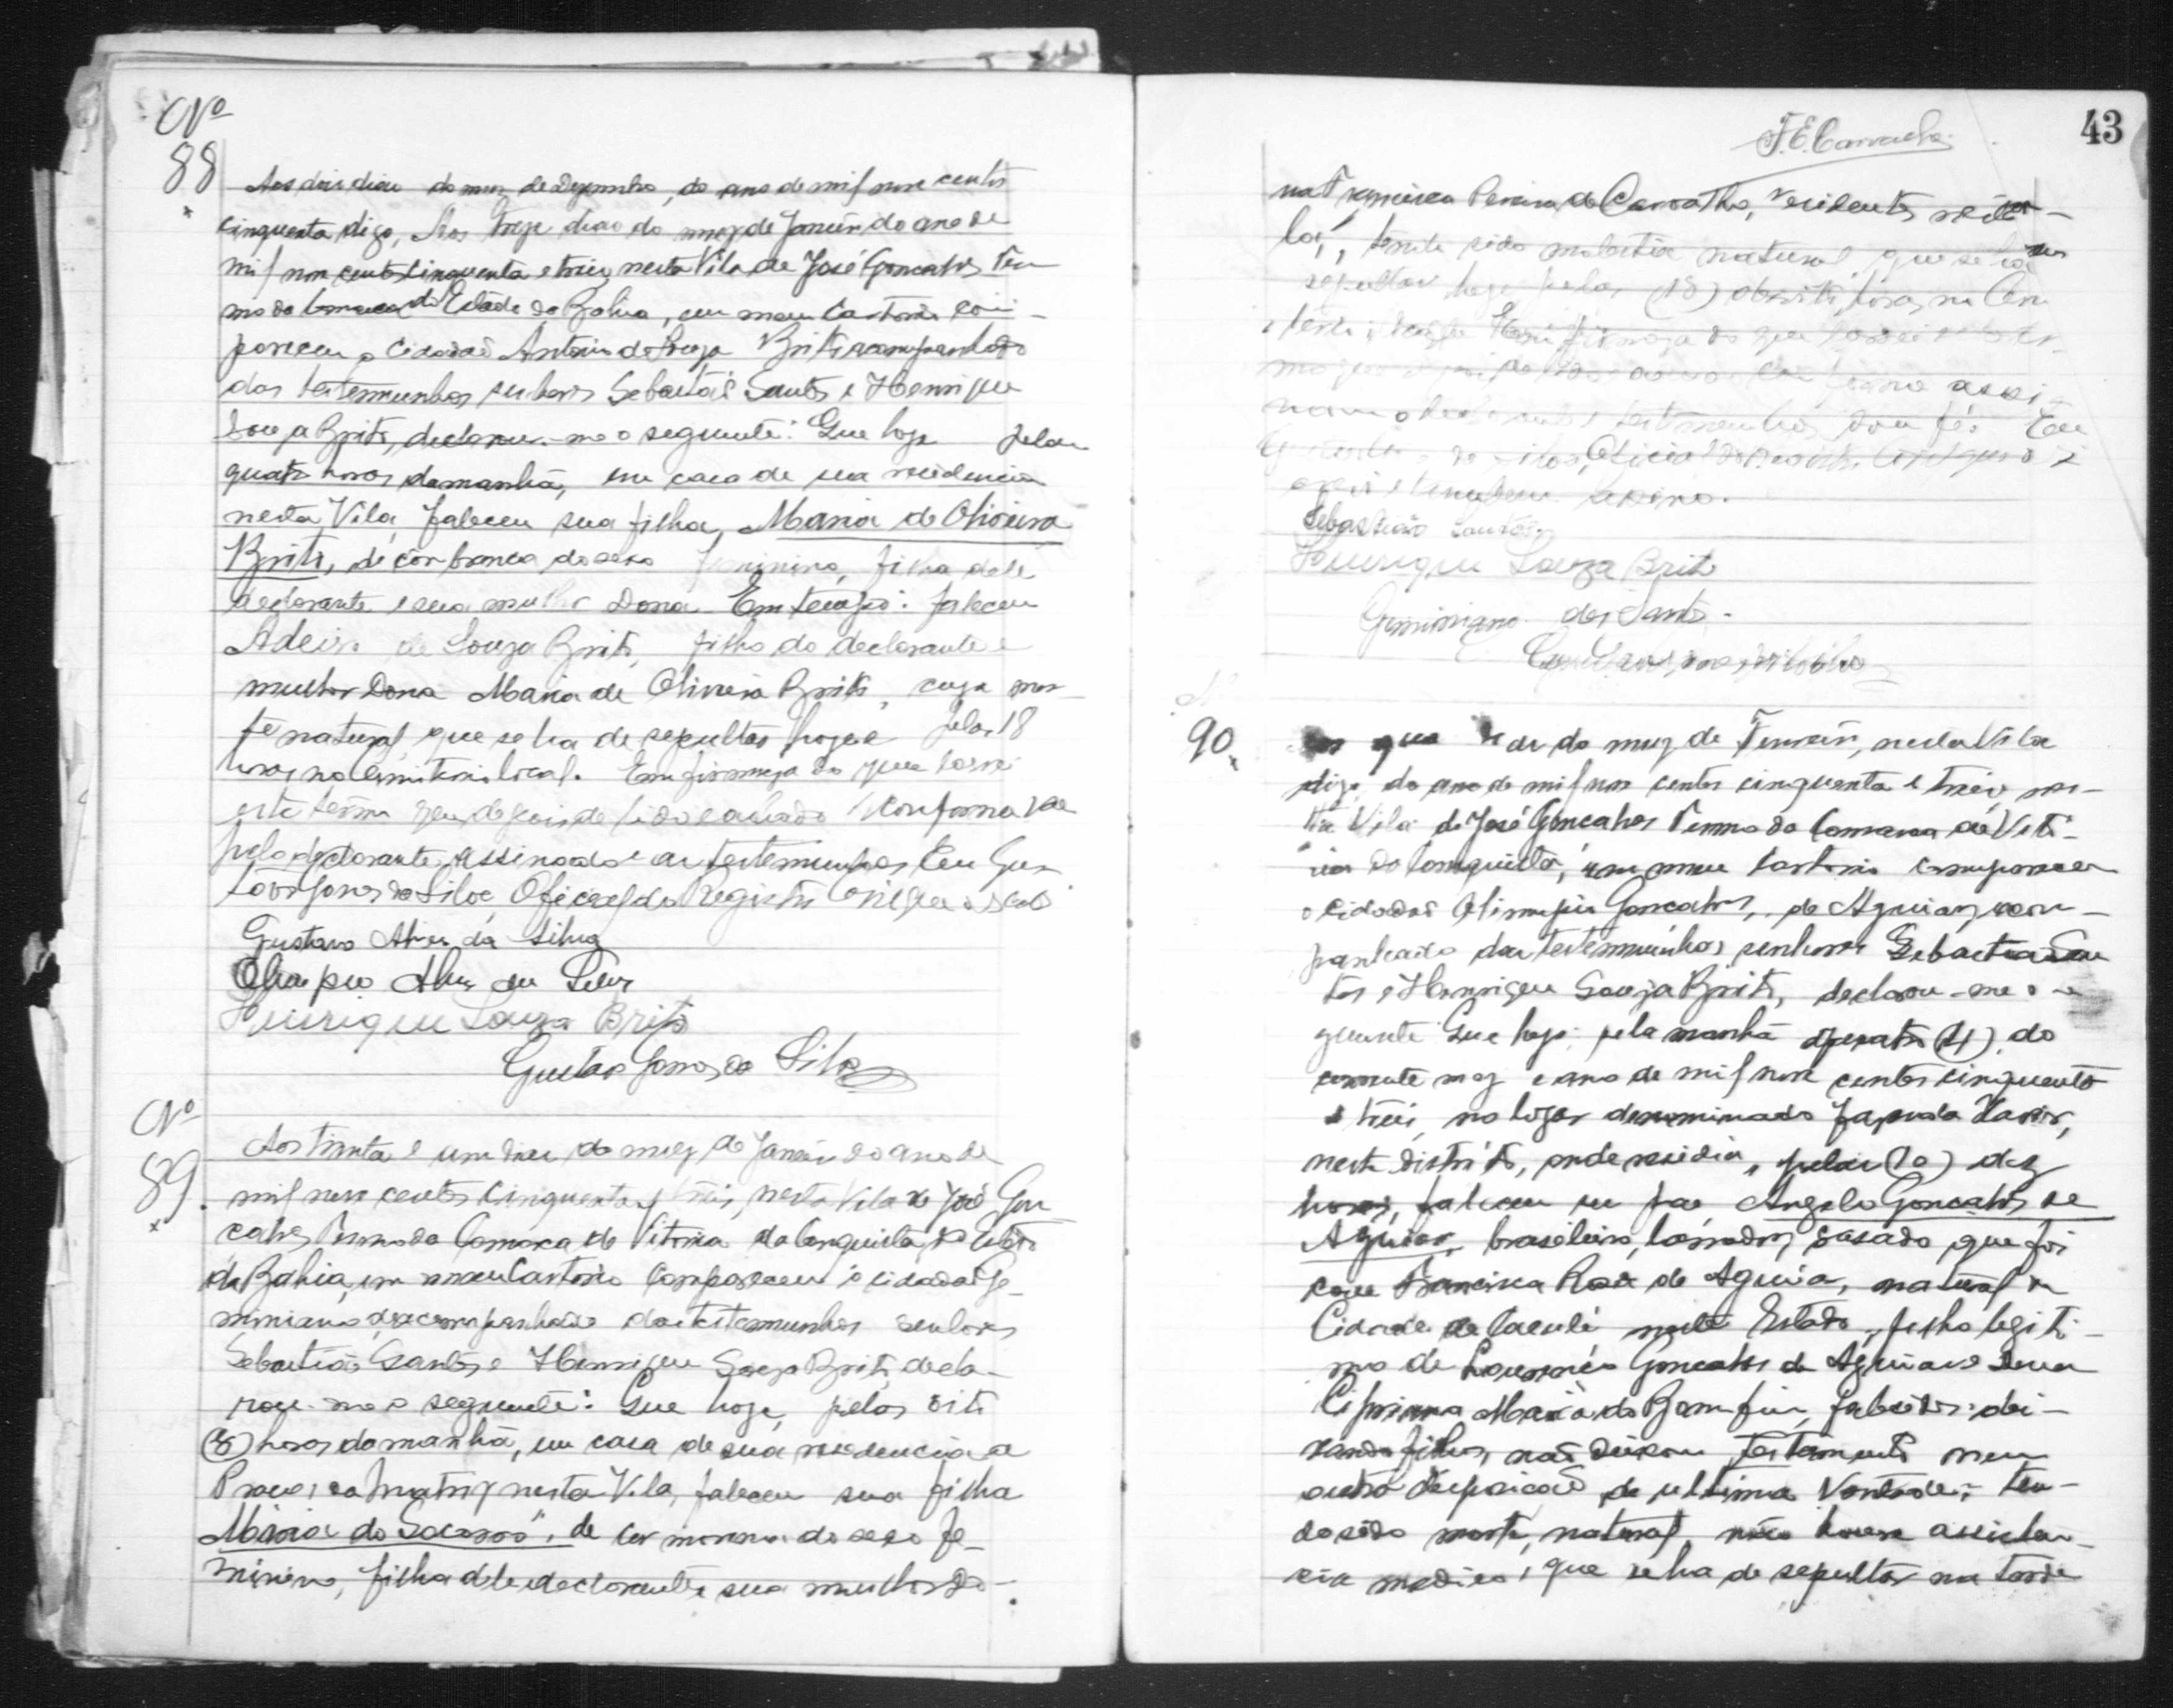 Nº
88 Aos dois dias do mez de Dezembro, do ano de mil nove centos
cinquenta digo, Aos treze dias do mez de Janeiro do ano de
mil nove centos cinquenta e treis, nesta Vila de José Goncalves Ter
mo da Comarca do Estado da Bahia, em meu Cartorio com-
pareceu o Cidadaõ Antonio de Souza Brito acompanhado
das testemunhas senhores Sebastiaõ Santos e Henrique
Souza Brito, declarou-me o seguinte: Que hoje pelas
quatro horas da manhã, em casa de sua residencia
nesta Vila, faleceu sua filha, Maria de Oliveira
Brito, de côr branca do sexo feminino, filha dele
declarante e sua mulher Dona Em tempo: faleceu
de Souza Brito, filho do declarante e
mulher Dona Maria de Oliveira Brito, cuja mor-
te natural, que se ha de sepultar hoje pelas 18
horas no Cemiterio local. Em firmeza do que lavrei
este termo que depois de lido e achado conforme vae
pelo declarante assinado e as testemunhas Eu Gus
tavo Gomes da Silva, Oficial do Registro Civil que o escrevi
Gustavo Alves da Silva
Olimpio Alves da Silva
Henrique Souza Brito
Gustavo Gomes da Silva
Nº
89. Aos trinta e um dias do mez de Janeiro do ano de
mil nove centos cinquenta e treis, nesta Vila de José Gon
calves Termo da Comarca de Vitoria da Conquista, do Estado
da Bahia, em meu Cartorio compareceu o cidadaõ Ge-
miniano acompanhado das testemunhas senhores
Sebastiaõ Santos e Henrique Souza Brito, decla-
rou-me o seguinte: Que hoje, pelas oito
(8) horas da manhã, em casa de sua residencia a
Praca da Matriz nesta Vila, faleceu sua filha
"Maria do Socorro", de cor morena do sexo fe-
minino, filha dele declarante e sua mulher Do-
43
F.E. Carvalho
na Francisca Pereira de Carvalho, residentes neste
tendo sido molestia natural que se ha de
sepultar hoje pelas (18) oito horas, no Cem
Em firmeza do que lavrei este ter-
mo que
nam o declarante e testemunhas dou fé. Eu
da Silva, Oficial do Registro Civil que o
escrevi e tambem assino.
Sebastião Santos
Henrique Souza Brito
Geminiano dos Santos.
Nº
90. do mez de Fevereiro, nesta Vila
digo, do ano de mil nove centos cinquenta e treis, nes-
ta Vila de José Goncalves Termo da Comarca de Vito-
ria da Conquista, em meu Cartorio compareceu
o Cidadaõ Olimpio Goncalves, de Aguiar, acom-
panhado das testemunhas senhores Sebastiaõ San
tos e Henrique Souza Brito, declarou-me o se
guinte Que hoje: pela manhã quatro (4), do
corrente mez e ano de mil nove centos cinquenta
e treis, no lugar denominado Fazenda
neste distrito, onde residia, pelas (10) dez
horas, faleceu seu pae Angelo Goncalves de
Aguiar, brasileiro, lavrador, casado que foi
com Francisca Rosa de Aguiar, natural da
Cidade de Caculé neste Estado, filho legiti-
mo de Lourenço Goncalves de Aguiar e Dona
Cipriana Maria do Bomfim, falecidos: dei-
xando filhos, naõ deixou testamento nem
outra disposicaõ de ultima Vontade; ten-
do sido morte, natural, não houve assisten-
cia medica, que se ha de sepultar na tarde